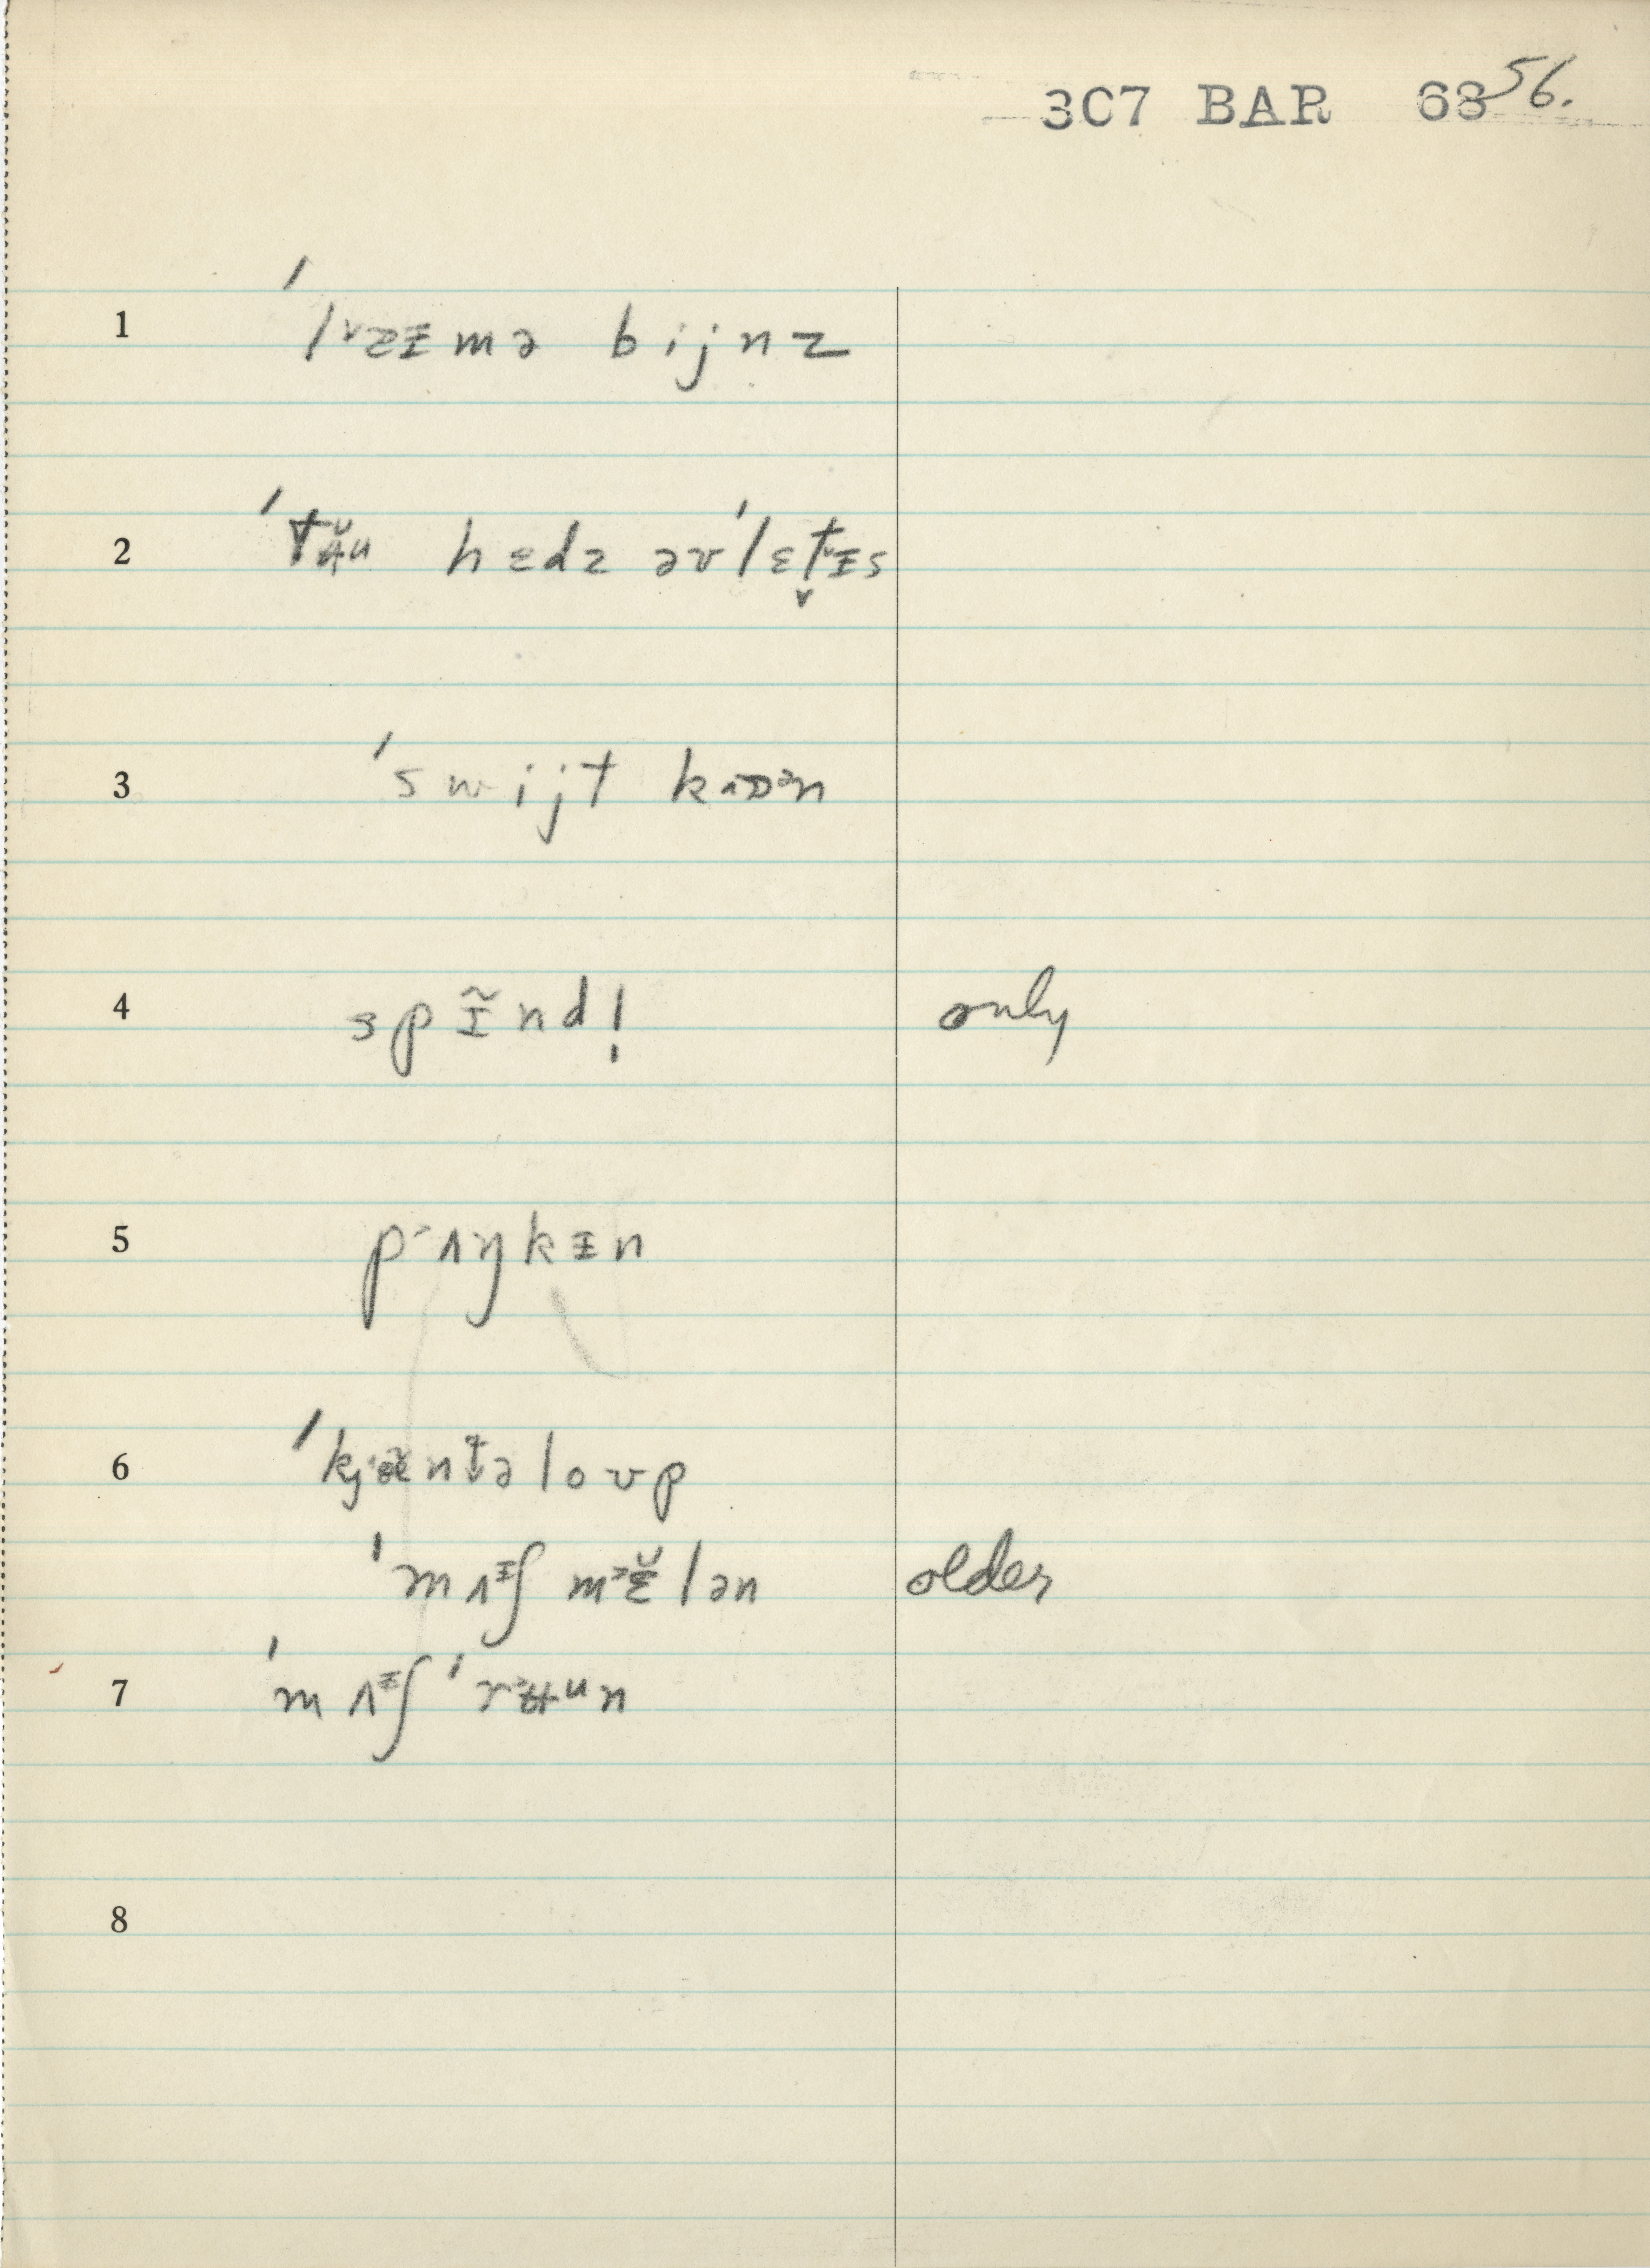 3C7 BAR 68 56.
1 ˈlᵛzɪmə bijnz
2 ˈtæ̆u hɛdz əvˈlɛt̬ᵛɪs
3 ˈswijt kɒən
4 spɪ̃nd! only
5 pʌŋkɪn
6 ˈkjæntəloʊp
ˈmʌᶦʃ mɛ̆lən older
7 ˈmʌᶦʃ ˈrʉun
8